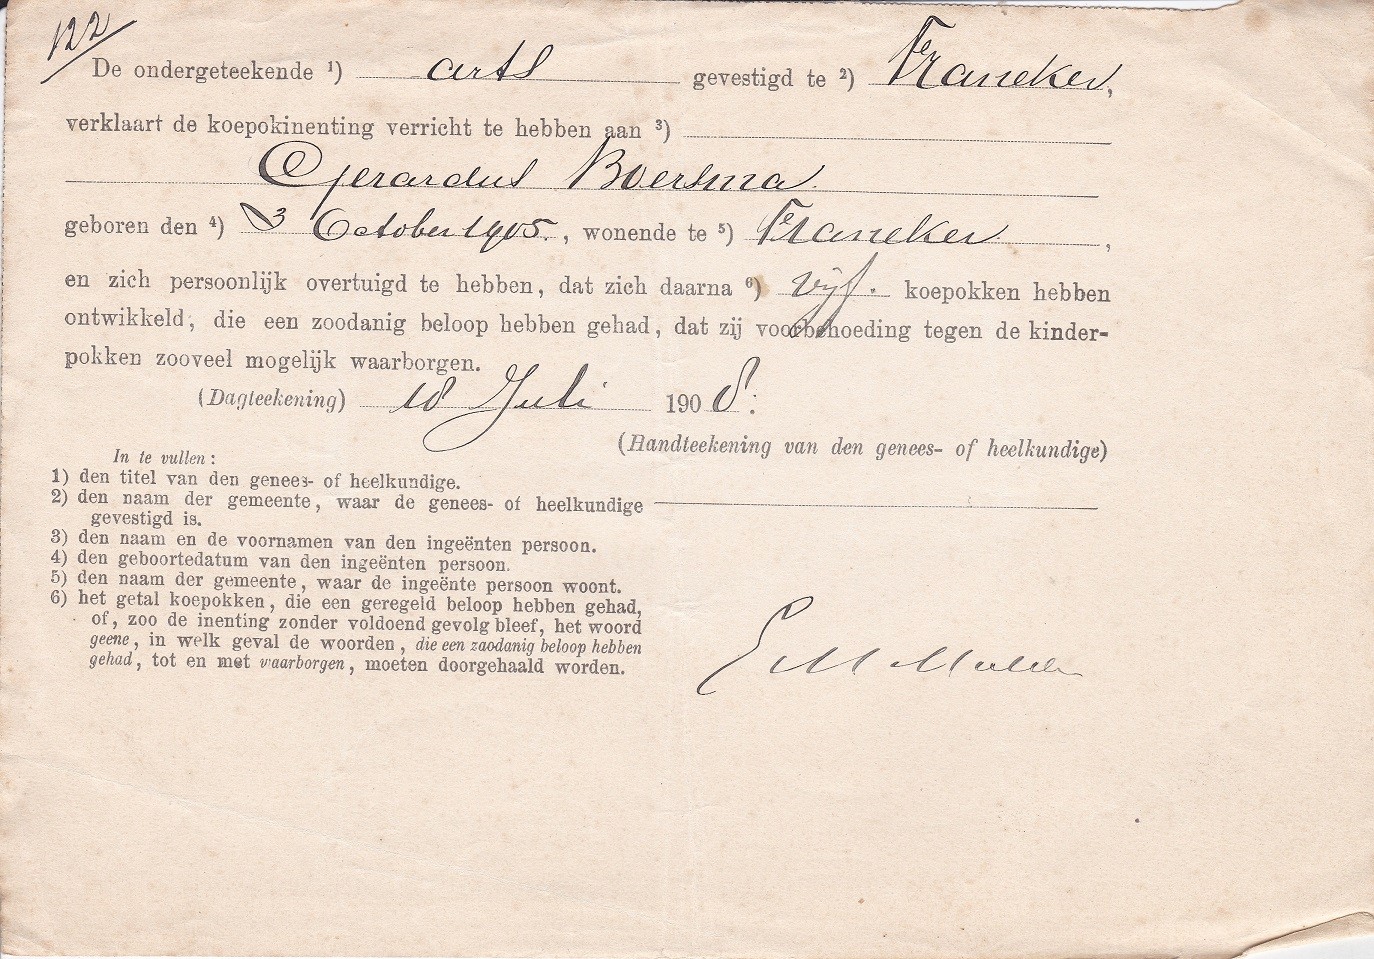 122
De ondergeteekende ¹) arts gevestigd te ²) Franeker,
verklaart de koepokinenting verricht te hebben aan ³)
Gerardus Boersma.
geboren den ⁴) 3 October 1905. , wonende te ⁵) Franeker. ,
en zich persoonlijk overtuigd te hebben, dat zich daarna ⁶) vijf. koepokken hebben
ontwikkeld, die een zoodanig beloop hebben gehad, dat zij voorbehoeding tegen de kinder-
pokken zooveel mogelijk waarborgen.
(Dagteekening) 18 Juli 1908.
(Handteekening van den genees- of heelkundige)
In te vullen:
1) den titel van den genees- of heelkundige.
2) den naam der gemeente, waar de genees- of heelkundige
gevestigd is.
3) den naam en de voornamen van den ingeënten persoon.
4) den geboortedatum van den ingeënten persoon.
5) den naam der gemeente, waar de ingeënte persoon woont.
6) het getal koepokken, die een geregeld beloop hebben gehad,
of, zoo de inenting zonder voldoend gevolg bleef, het woord
geene, in welk geval de woorden, die een zoodanig beloop hebben
gehad, tot en met waarborgen, moeten doorgehaald worden.